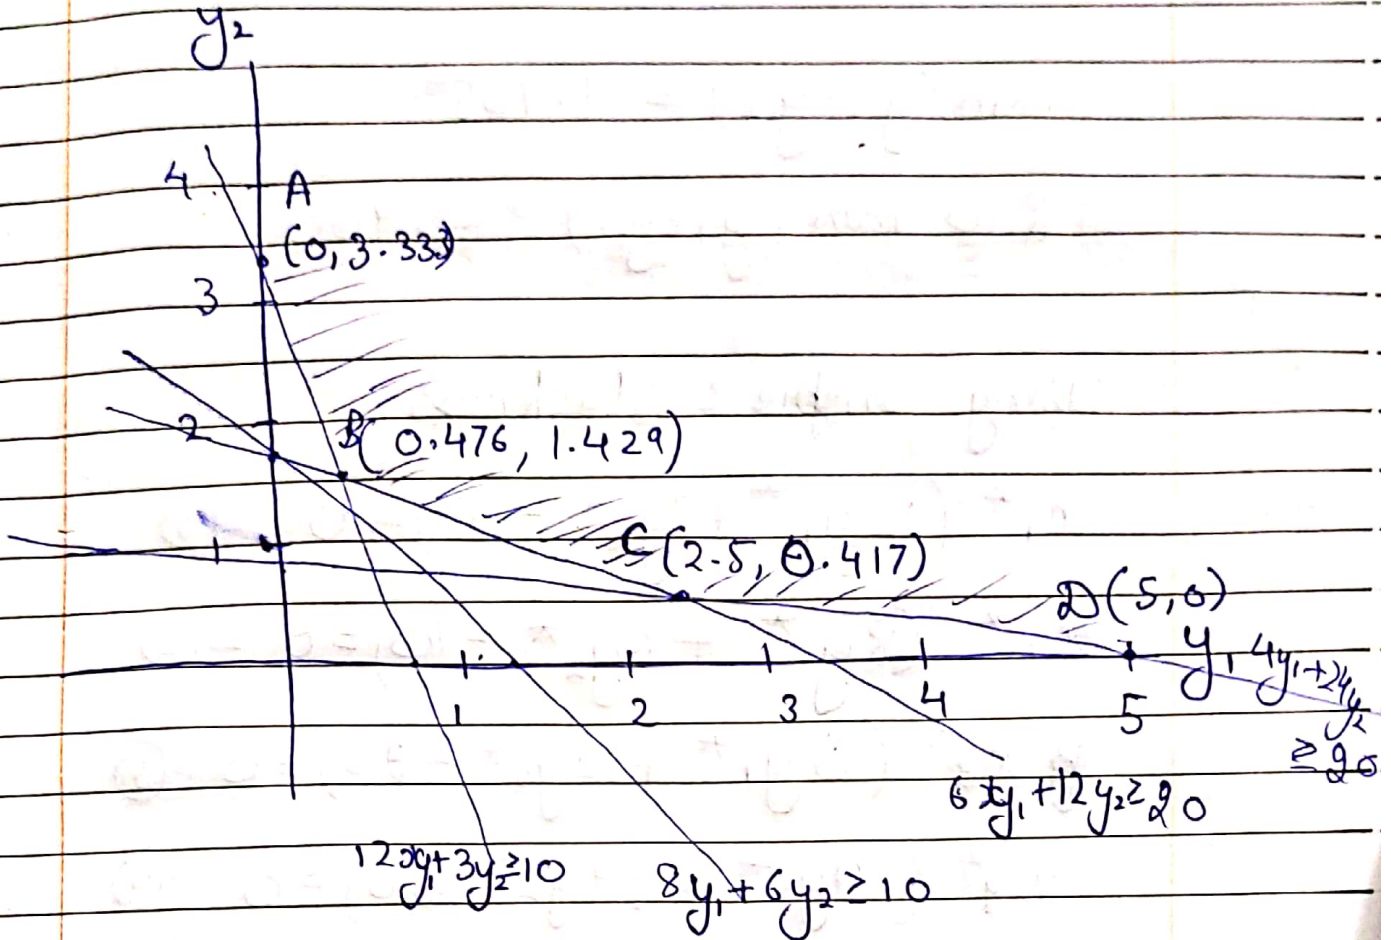 y₂
4
A
(0, 3.333)
3
2
B(0.476, 1.429)
1
C(2.5, 0.417)
D(5,0)
y₁
4y₁+24y₂
≥20
1
2
3
4
5
6y₁+12y₂≥20
12y₁+3y₂≥10
8y₁+6y₂≥10